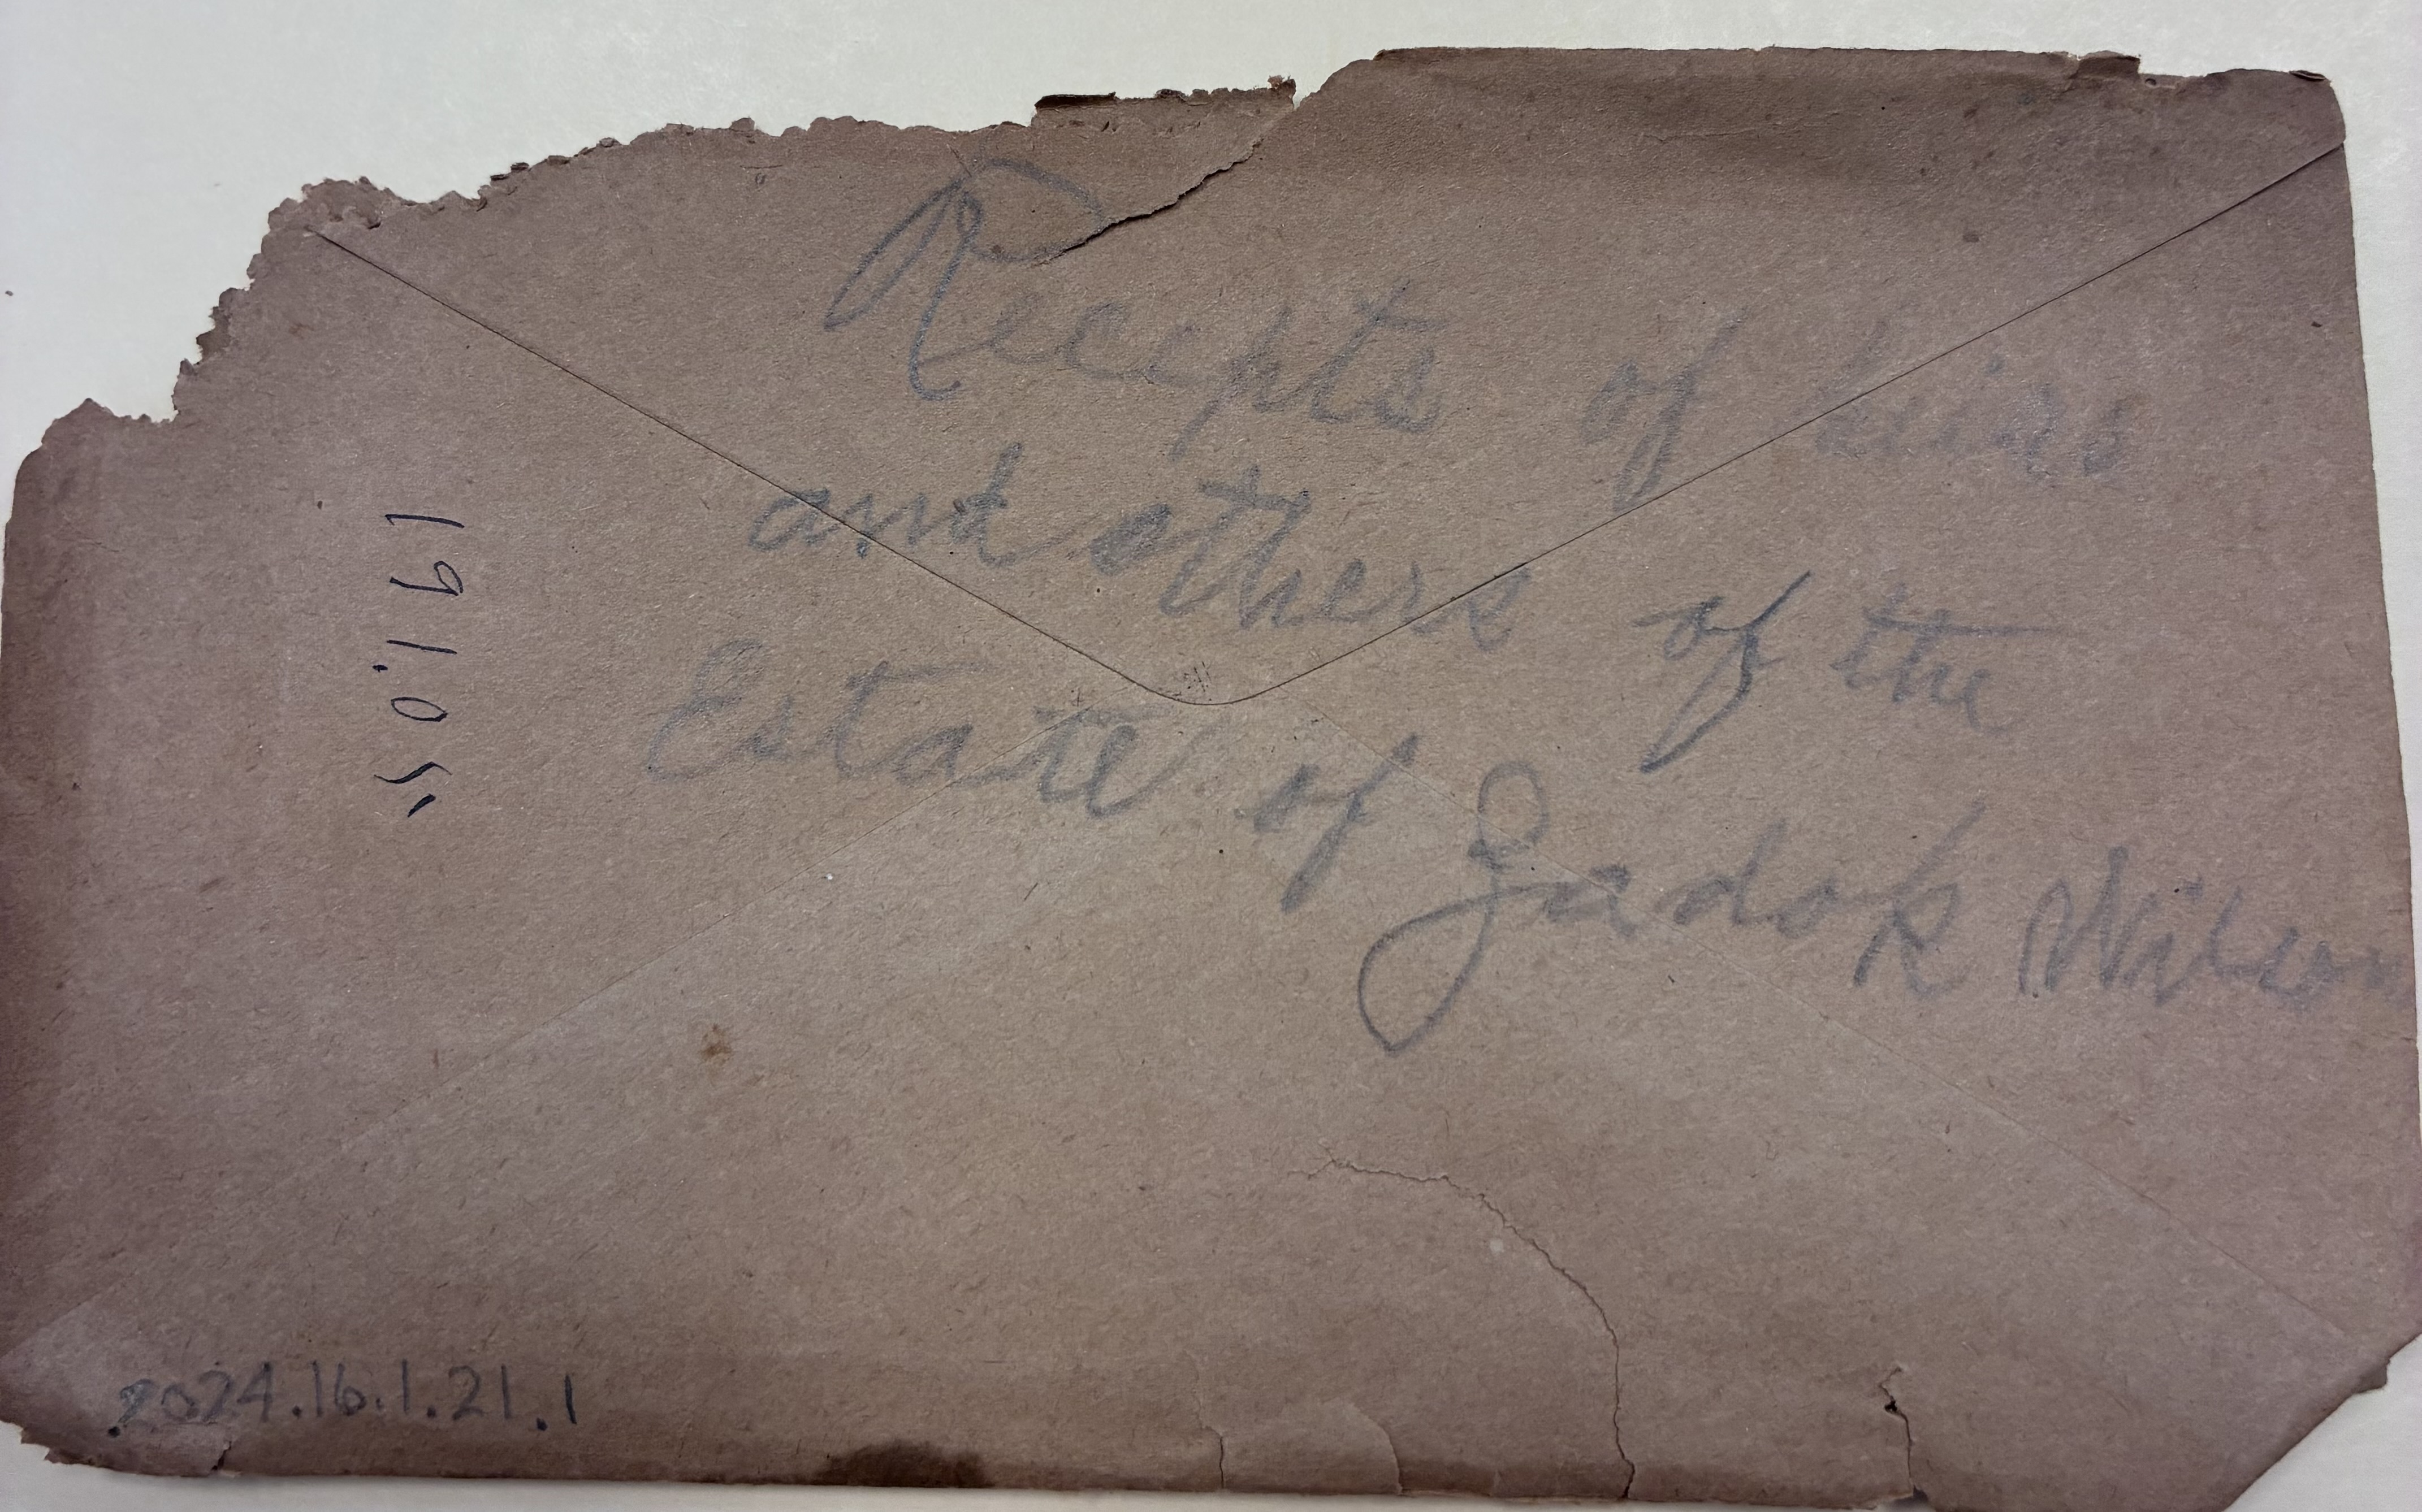 Recepts of heirs
and others of the
Estate of Zadok Wilson
191.05
2024.16.1.21.1